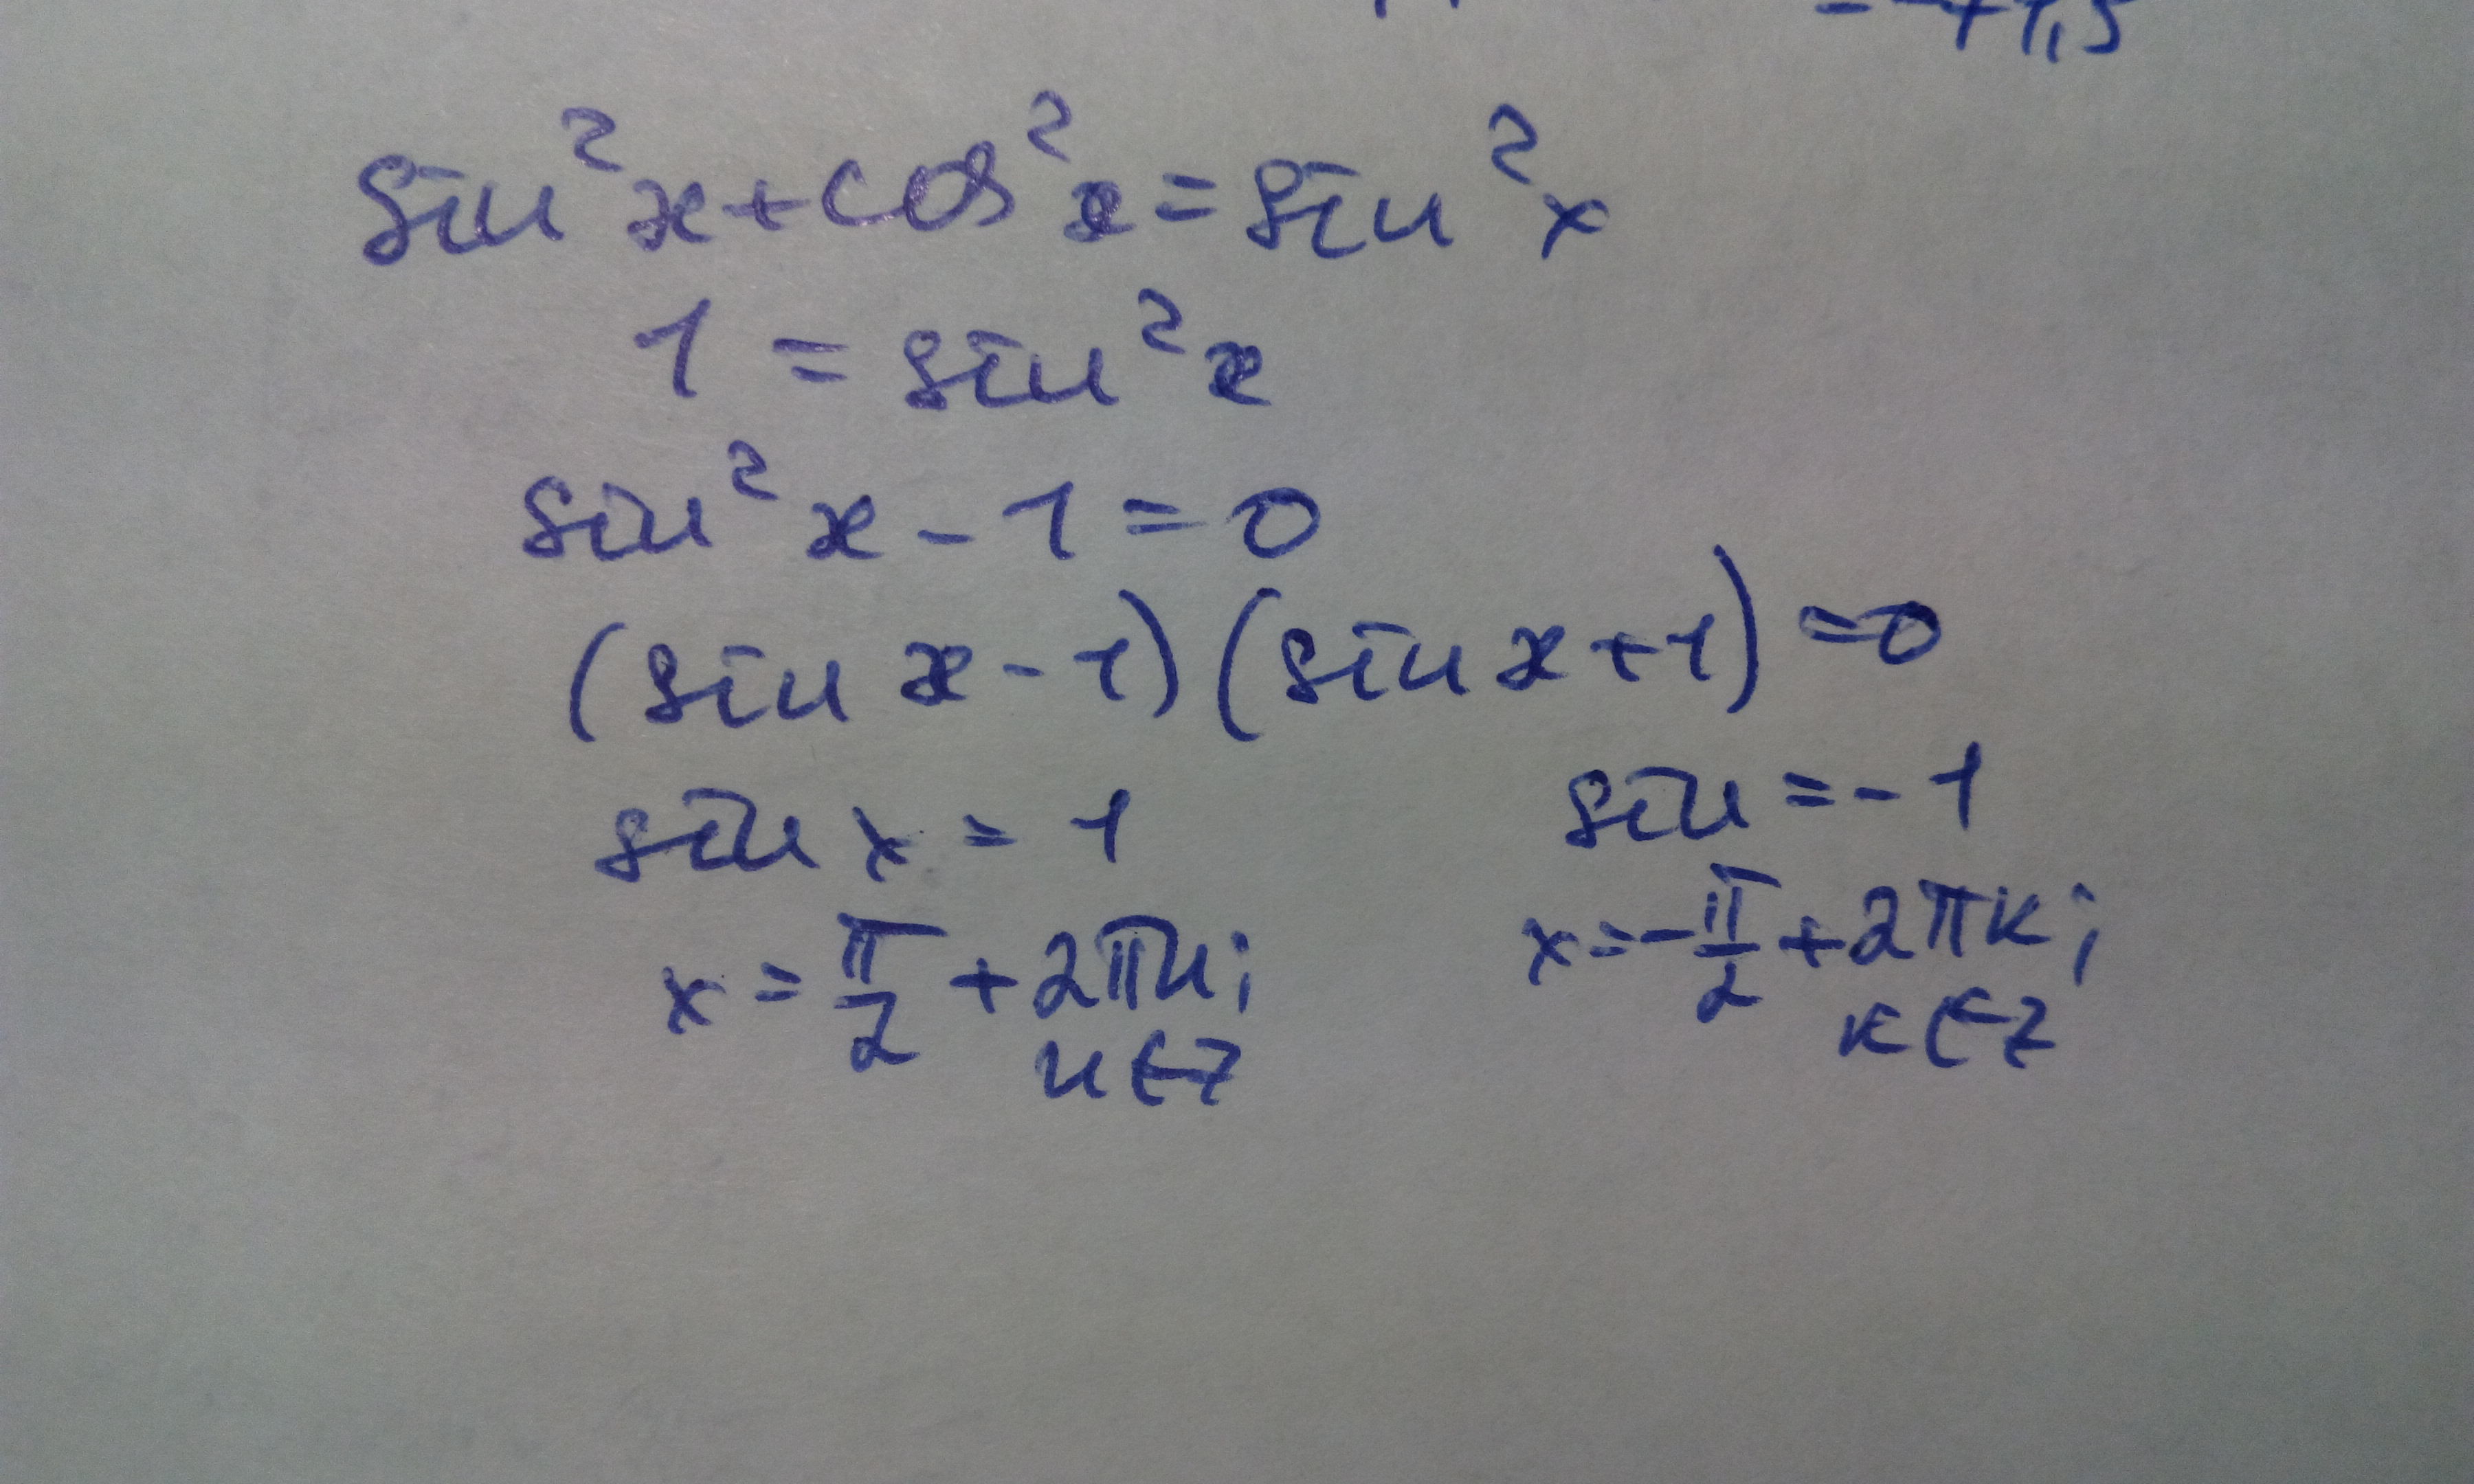 sin²x+cos²x=sin²x
1 = sin²x
sin²x - 1 = 0
(sin x - 1)(sin x + 1) = 0
sin x = 1
x = π/2 + 2πn;
n∈Z
sin = -1
x = -π/2 + 2πk;
k∈Z